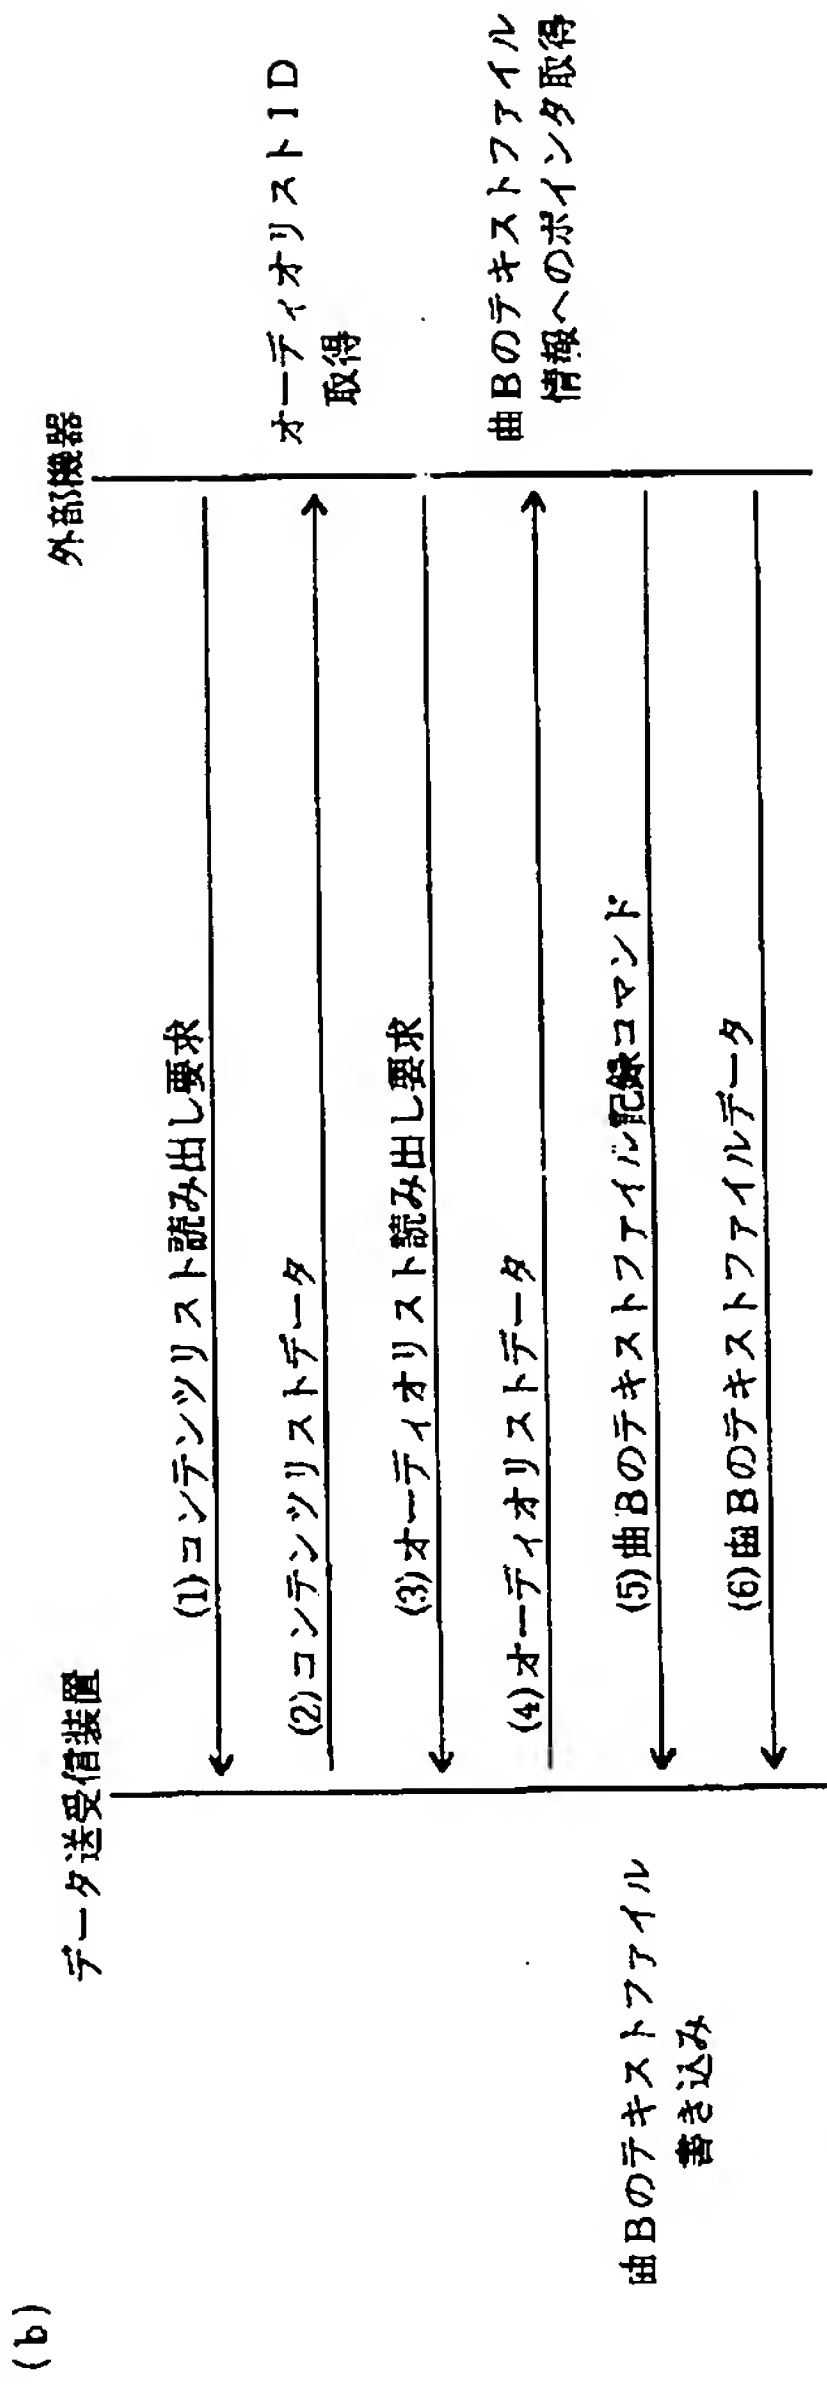 (b)
データ送受信装置
外部機器
(1)コンテンツリスト読み出し要求
(2)コンテンツリストデータ
オーディオリストID
取得
(3)オーディオリスト読み出し要求
(4)オーディオリストデータ
曲Bのテキストファイル
情報へのポインタ取得
(5)曲Bのテキストファイル記録コマンド
曲Bのテキストファイル
書き込み
(6)曲Bのテキストファイルデータ